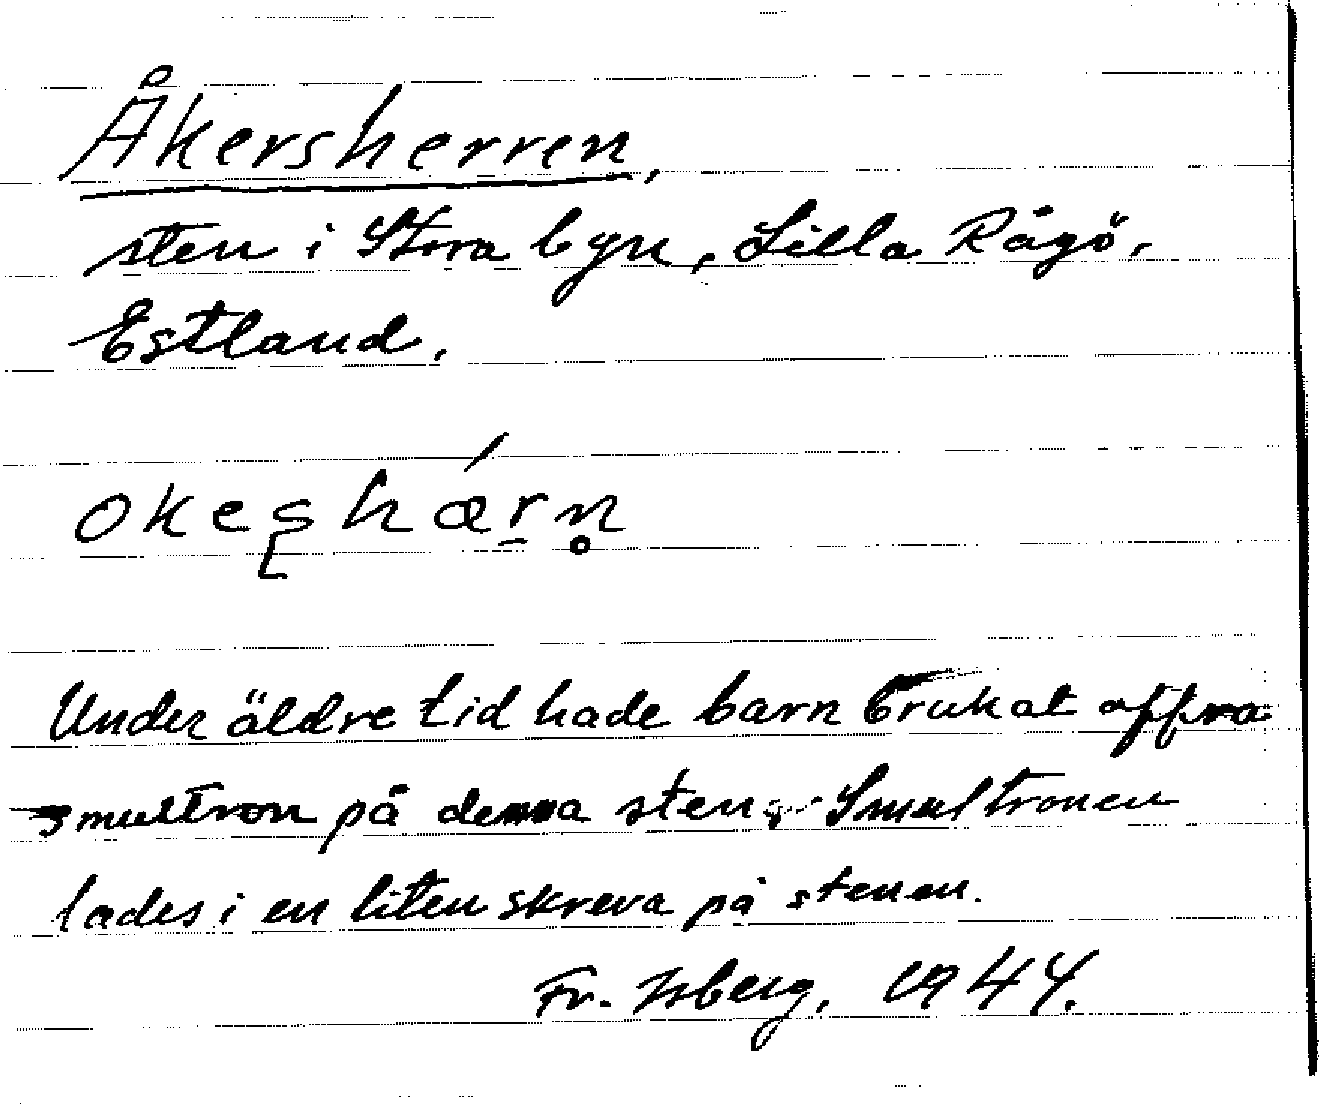 Åkersherren,
sten i Stora byn, Lilla Rågö,
Estland.
okeshǽr̲n̥
Under äldre tid hade barn brukat offra
smultron på denna sten. Smultronen
lades i en liten skreva på stenen.
Fr. Isberg, 1944.